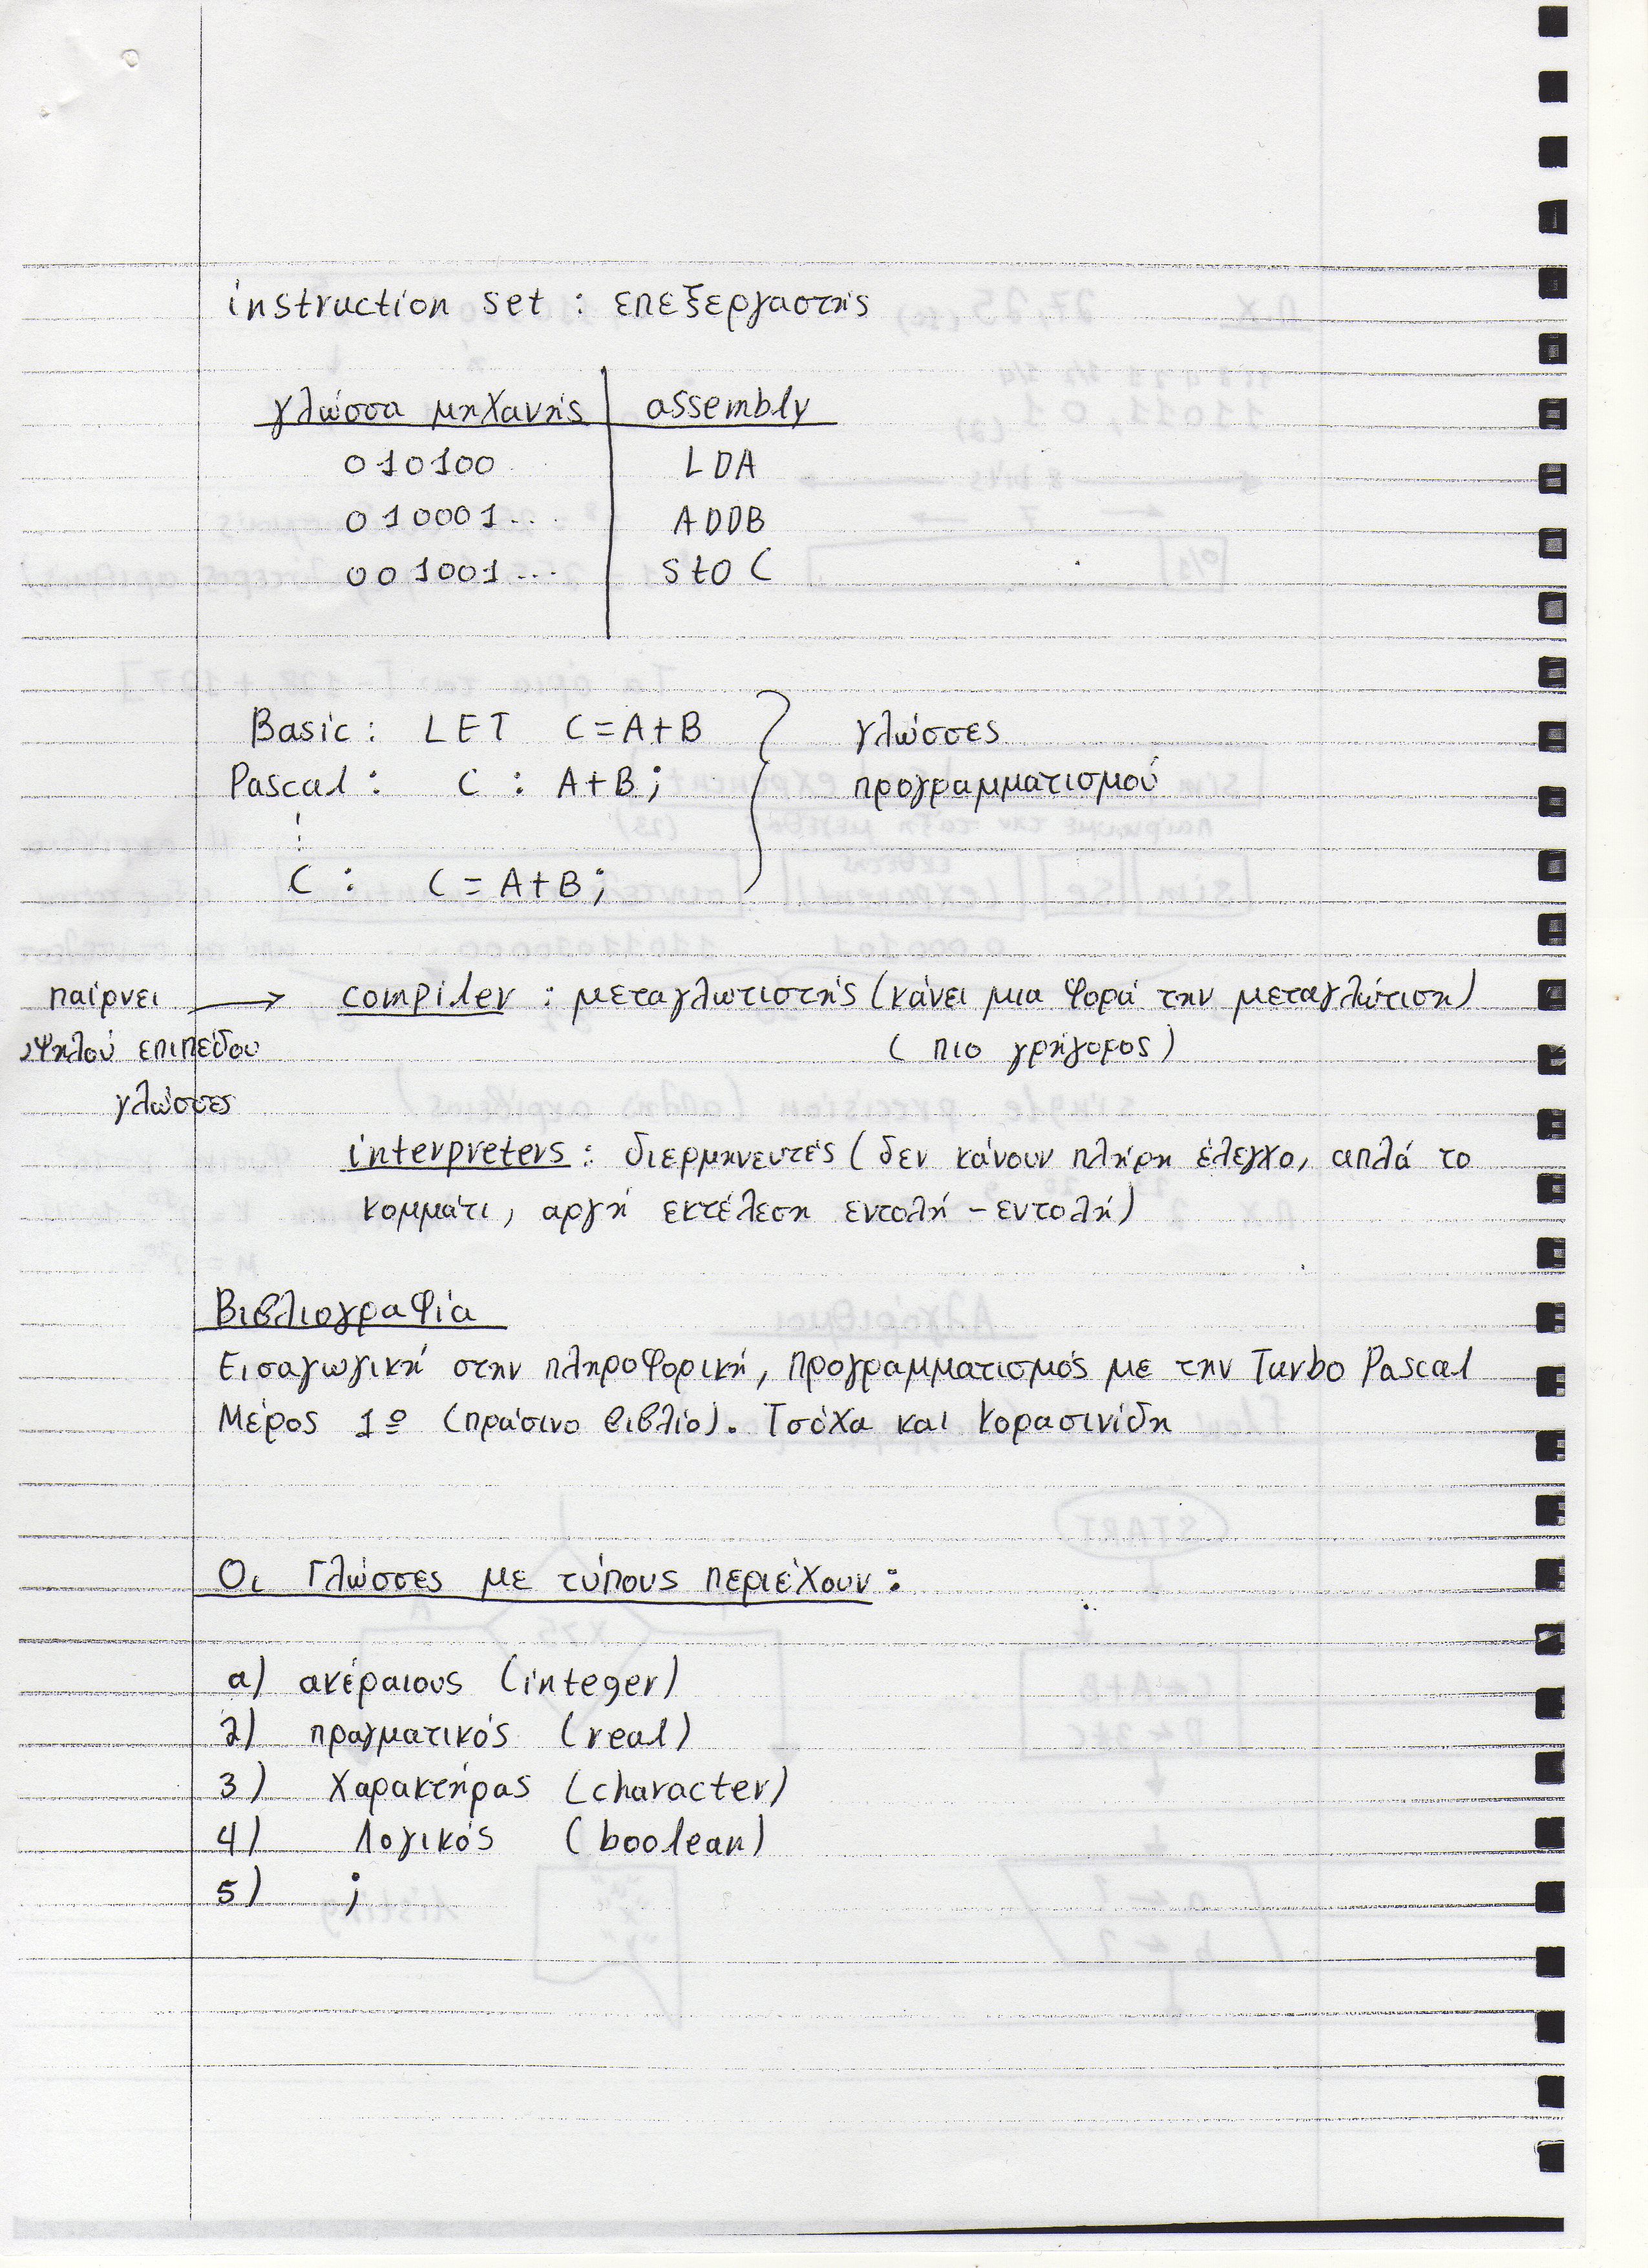 instruction set : επεξεργαστής
γλώσσα μηχανής | assembly
010100 | LDA
010001... | ADDB
001001... | StO C
Basic : LET C=A+B γλώσσες
Pascal : C : A+B; προγραμματισμού
⋮
C : C=A+B;
παίρνει → compiler : μεταγλωτιστής (κάνει μια φορά την μεταγλώτιση)
υψηλού επιπέδου (πιο γρήγορος)
γλώσσες
interpreters : διερμηνευτές (δεν κάνουν πλήρη έλεγχο, απλά το
κομμάτι, αργή εκτέλεση εντολή - εντολή)
Βιβλιογραφία
Εισαγωγική στην πληροφορική, προγραμματισμός με την Turbo Pascal
Μέρος 1º (πράσινο βιβλίο). Τσόχα και Κορασινίδη
Οι Γλώσσες με τύπους περιέχουν :
a) ακέραιους (integer)
2) πραγματικός (real)
3) χαρακτήρας (character)
4) λογικός (boolean)
5) ;